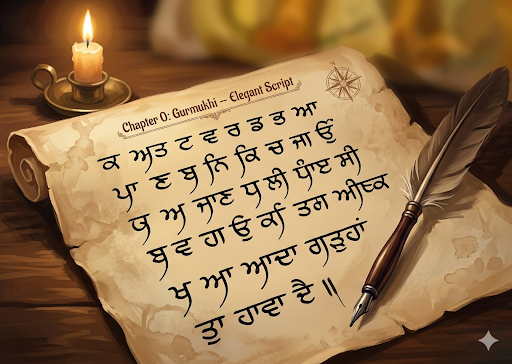 Chapter 0: Gurmukhi – Elegant Script
ਕ ਅਤ ਟ ਵ ਰ ਡ ਭ ਆ
ਪਾ ਣ ਬੁ ਨਿ ਕਿ ਚ ਜਾ ਓਂ
ਯ ਅ ਜਾਣ ਧ ਲੀ ਸੀ
ਬੁ ਵ ਹਾ ਓੁ ਤਗ
ਖੁ ਆ ਆਦਾ ਗੜੁਹਾਂ
ਤੁਾ ਹਾਵਾ ਦੈ ॥